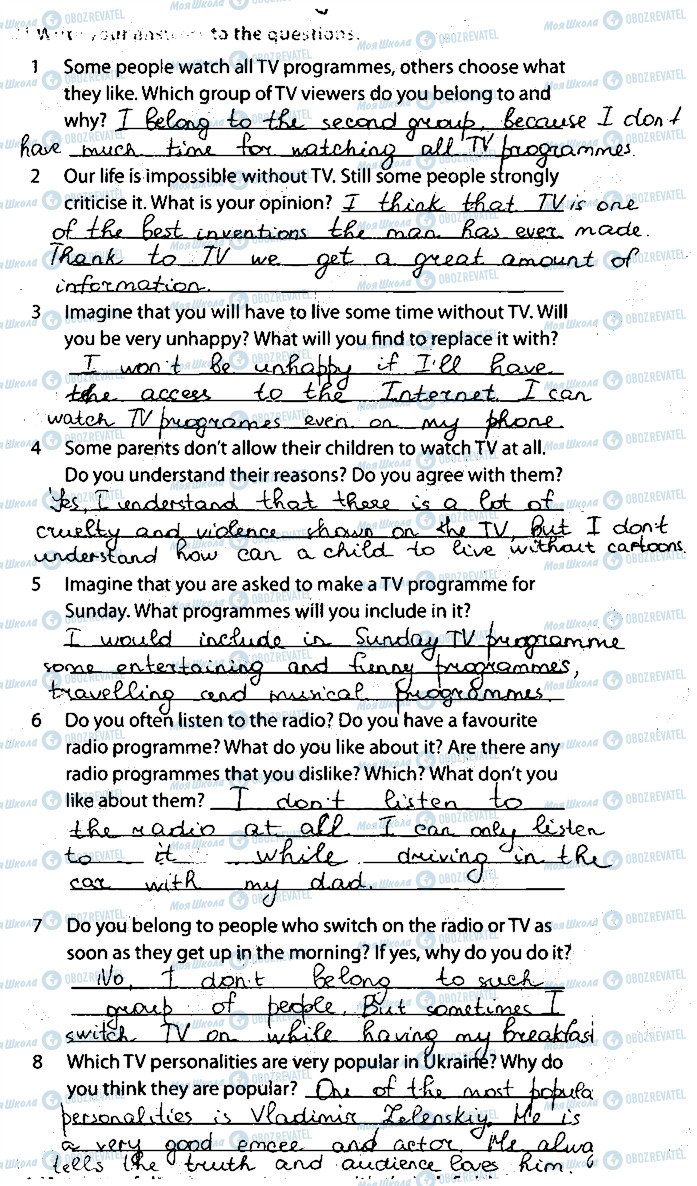 Write your answers to the questions.
1 Some people watch all TV programmes, others choose what
they like. Which group of TV viewers do you belong to and
why? I belong to the second group, because I don't
have much time for watching all TV programmes.
2 Our life is impossible without TV. Still some people strongly
criticise it. What is your opinion? I think that TV is one
of the best inventions the man has ever made.
Thank to TV we get a great amount of
information.
3 Imagine that you will have to live some time without TV. Will
you be very unhappy? What will you find to replace it with?
I won't be unhappy if I'll have
the access to the Internet. I can
watch TV programes even on my phone.
4 Some parents don't allow their children to watch TV at all.
Do you understand their reasons? Do you agree with them?
Yes, I understand that there is a lot of
cruelty and violence shown on the TV, but I don't
understand how can a child to live without cartoons.
5 Imagine that you are asked to make a TV programme for
Sunday. What programmes will you include in it?
I would include in Sunday TV programme
some entertaining and funny programmes,
travelling and musical programmes.
6 Do you often listen to the radio? Do you have a favourite
radio programme? What do you like about it? Are there any
radio programmes that you dislike? Which? What don't you
like about them? I don't listen to
the radio at all. I can only listen
to it while driving in the
car with my dad.
7 Do you belong to people who switch on the radio or TV as
soon as they get up in the morning? If yes, why do you do it?
No, I don't belong to such
group of people. But sometimes I
switch TV on while having my breakfast
8 Which TV personalities are very popular in Ukraine? Why do
you think they are popular? One of the most popula
personalities is Vladimir Zelenskiy. He is
a very good emcee and actor. He alwa
tells the truth and audience loves him.
Моя Школа OBOZREVATEL